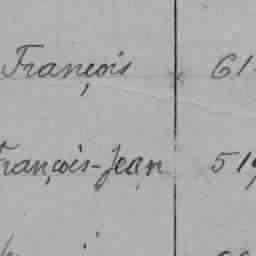 François 61
François-Jean 519